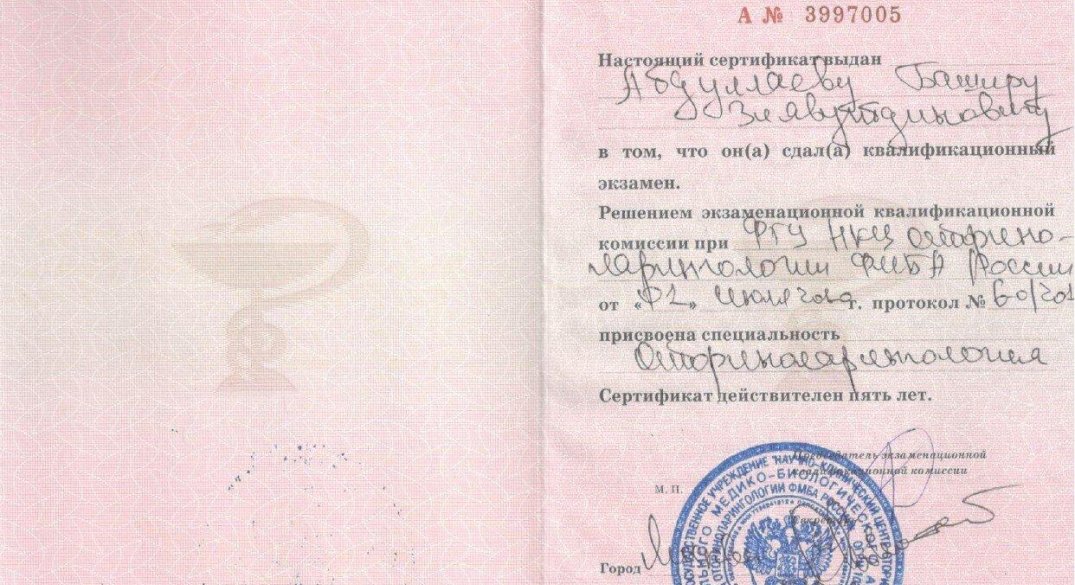 А № 3997005
Настоящий сертификат выдан
Абдуллаеву Баширу
Зиявутдиновичу
в том, что он(а) сдал(а) квалификационный
экзамен.
Решением экзаменационной квалификационной
комиссии при ФГУ НКЦ оторино-
ларингологии ФМБА России
от « » июля г. протокол № 60/201
присвоена специальность
Оториноларингология
Сертификат действителен пять лет.
Председатель экзаменационной
квалификационной комиссии
М. П.
Секретарь
Город Москва
УЧРЕЖДЕНИЕ "НАУЧНО-КЛИНИЧЕСКИЙ ЦЕНТР
МЕДИКО-БИОЛОГИЧЕСКОГО
ОТОРИНОЛАРИНГОЛОГИИ ФМБА РОССИИ